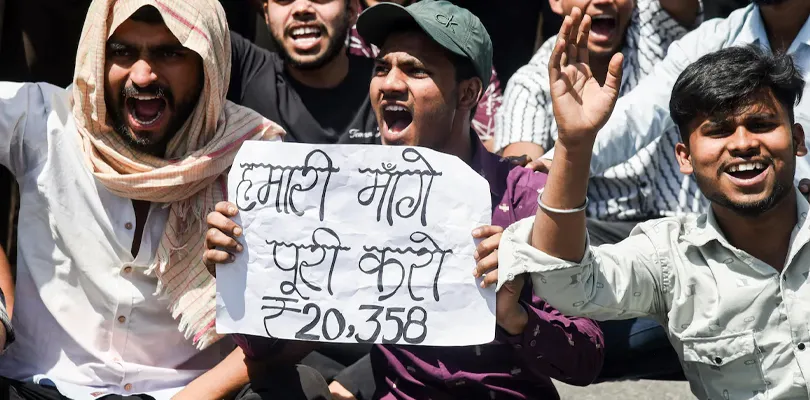 हमारी माँगे
पूरी करो
₹20,358